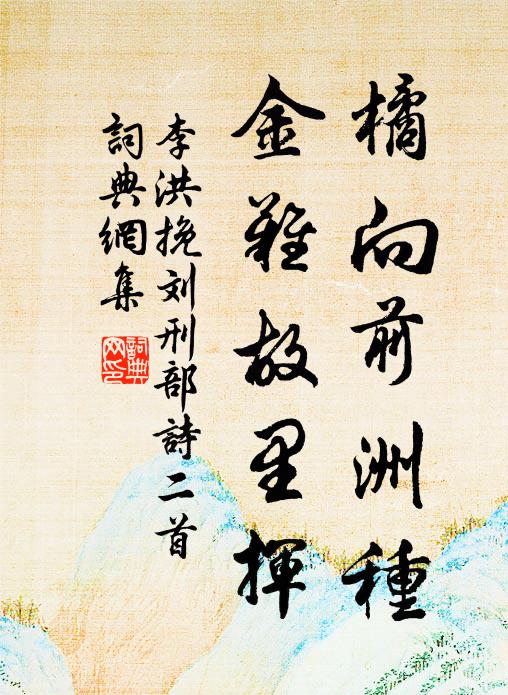 橘向前洲種
金難故里揮
李洪挽刘刑部詩二首
詞典網集
詞典網印